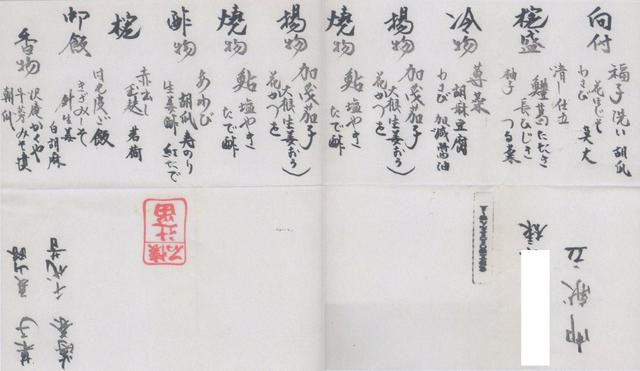 向付
福子洗い 胡瓜
花ほじそ
わさび
椀盛
清し仕立
鱧葛たたき
長ひじき つる菜
柚子
冷物
蓴菜
胡麻豆腐
わさび 加減醤油
揚物
加茂茄子
大根生姜おろし
花かつを
焼物
鮎 塩やき
たで酢
揚物
加茂茄子
大根生姜おろし
花かつを
焼物
鮎 塩やき
たで酢
酢物
あわび
胡瓜 寿のり
生姜酢 紅たで
椀
赤出し
豆麩 茗荷
御飯
針生姜
白胡麻
香物
沢庵かくや
牛蒡みそ漬
朝瓜
御献立
様
懐石
辻留
菓子